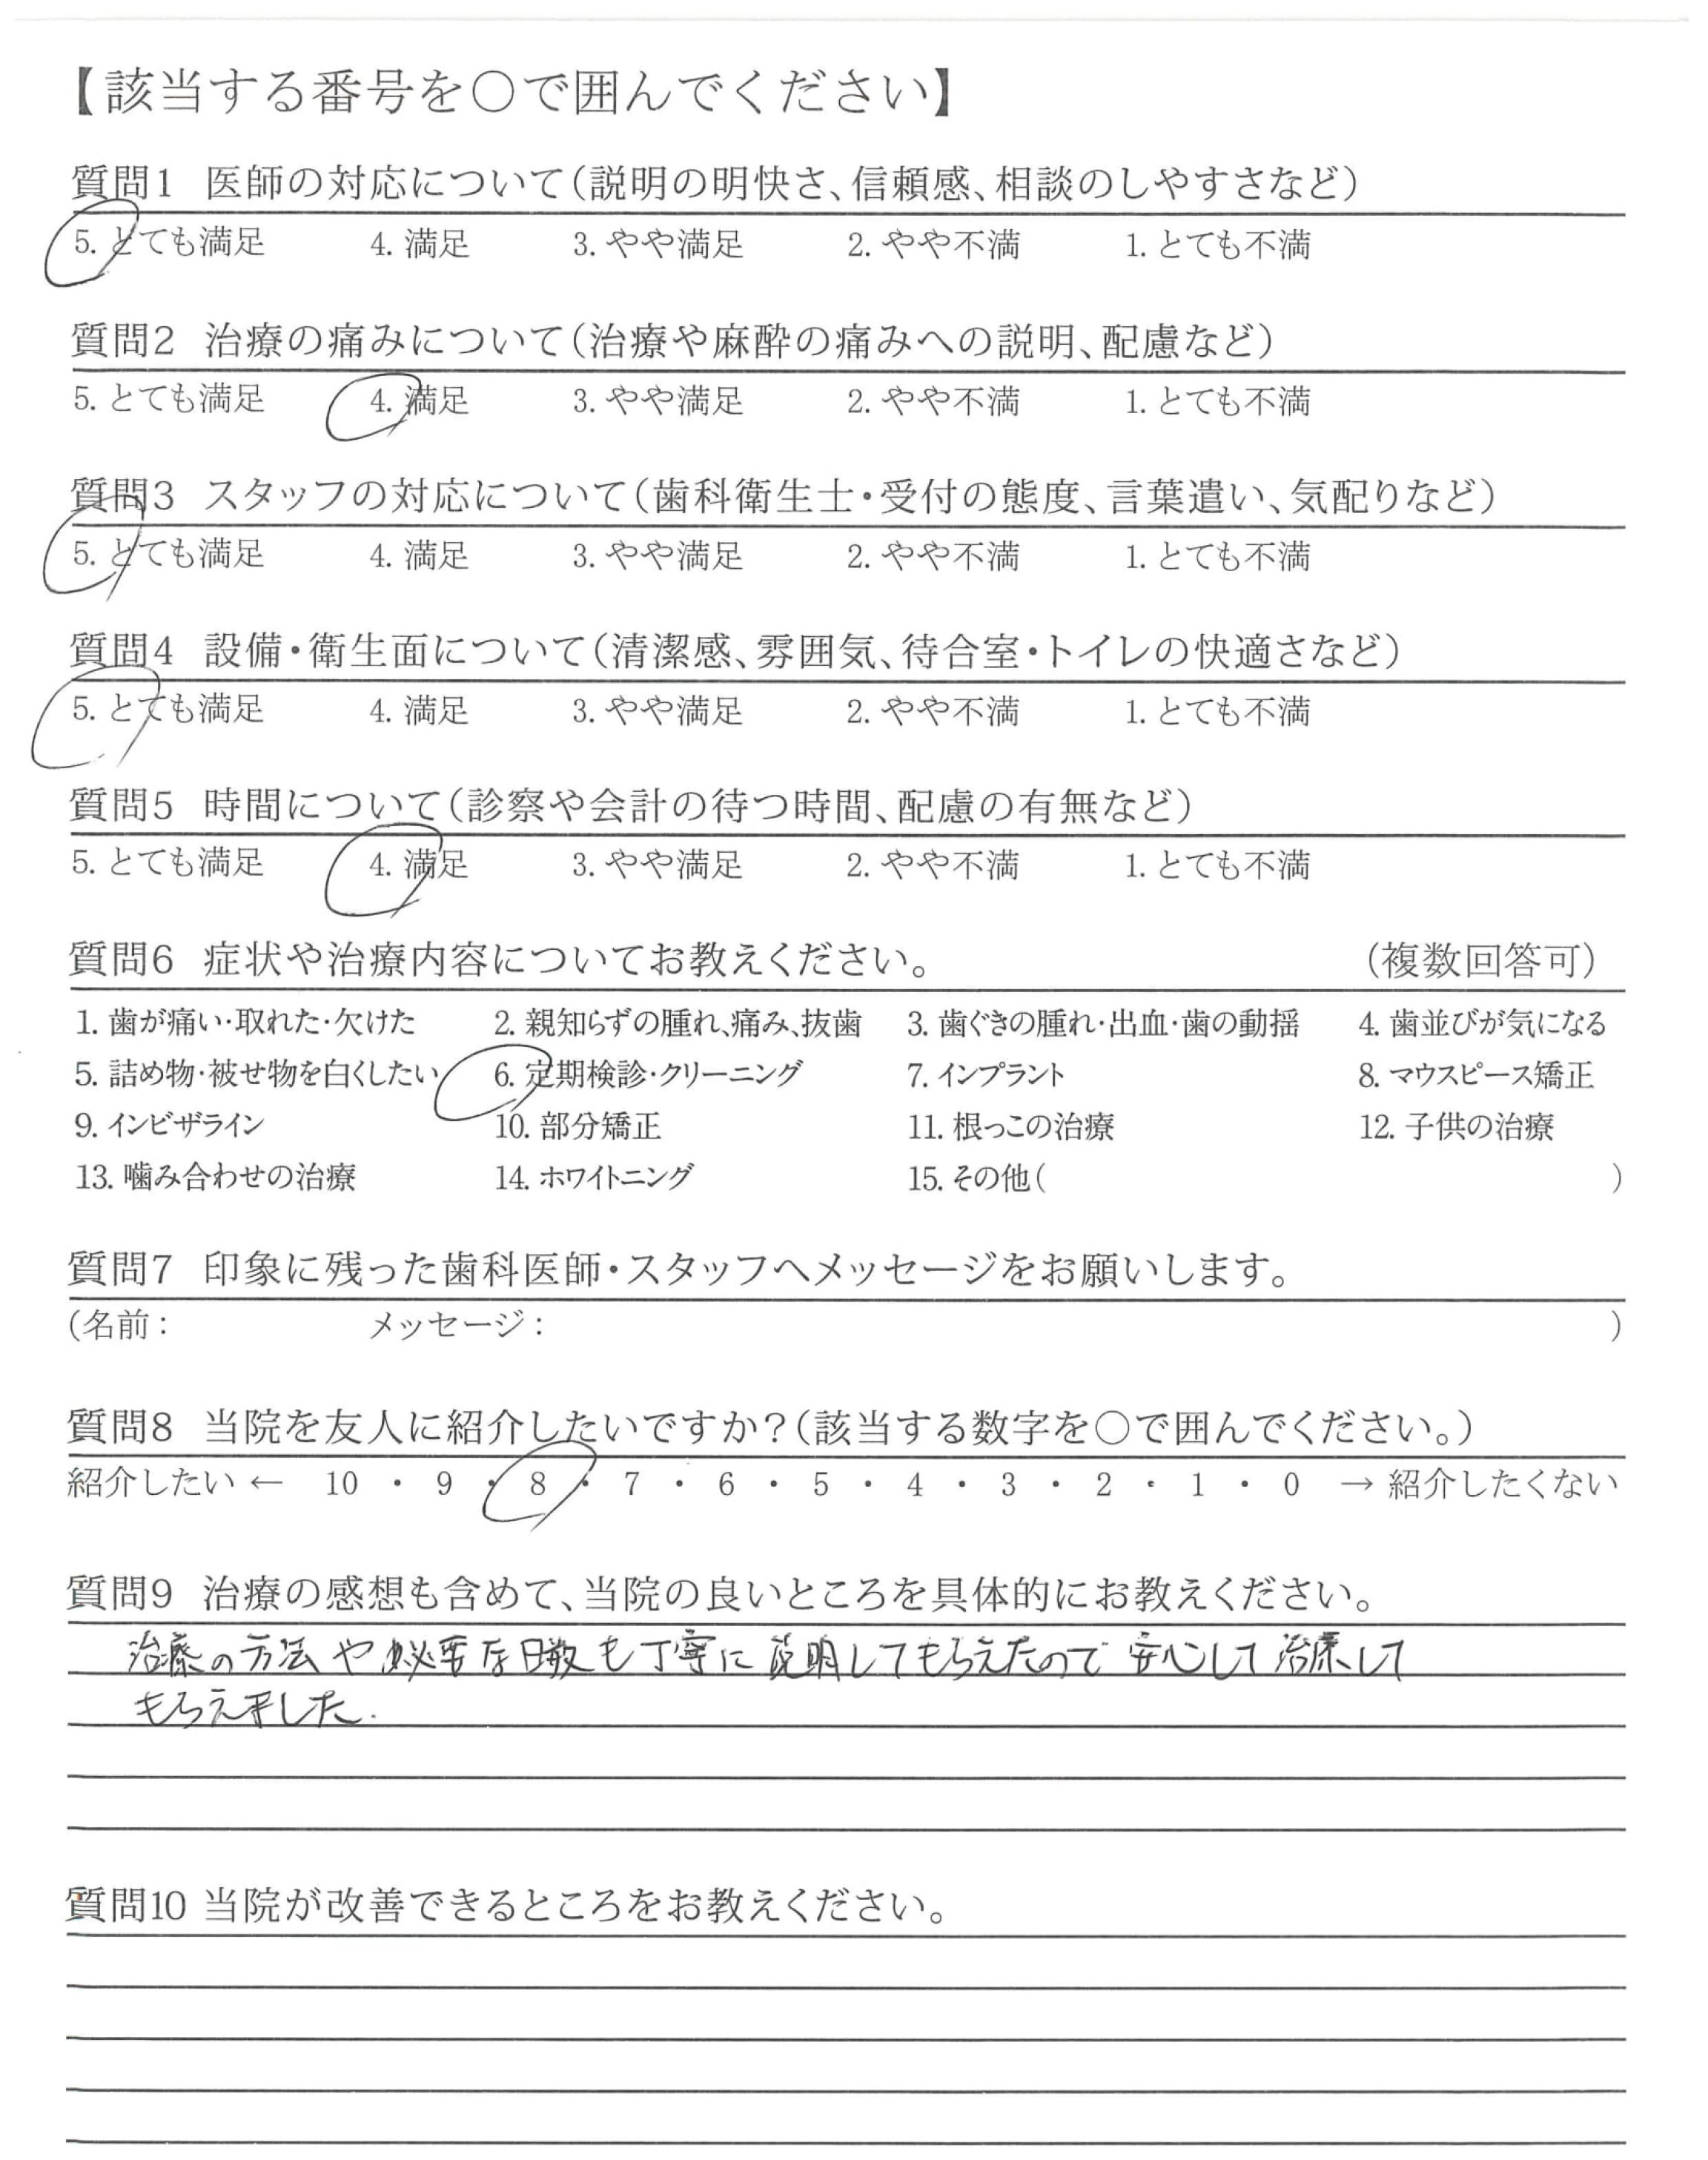 【該当する番号を○で囲んでください】
質問1 医師の対応について(説明の明快さ、信頼感、相談のしやすさなど)
5. とても満足 4. 満足 3. やや満足 2. やや不満 1. とても不満
質問2 治療の痛みについて(治療や麻酔の痛みへの説明、配慮など)
5. とても満足 4. 満足 3. やや満足 2. やや不満 1. とても不満
質問3 スタッフの対応について(歯科衛生士・受付の態度、言葉遣い、気配りなど)
5. とても満足 4. 満足 3. やや満足 2. やや不満 1. とても不満
質問4 設備・衛生面について(清潔感、雰囲気、待合室・トイレの快適さなど)
5. とても満足 4. 満足 3. やや満足 2. やや不満 1. とても不満
質問5 時間について(診察や会計の待つ時間、配慮の有無など)
5. とても満足 4. 満足 3. やや満足 2. やや不満 1. とても不満
質問6 症状や治療内容についてお教えください。 (複数回答可)
1. 歯が痛い・取れた・欠けた 2. 親知らずの腫れ、痛み、抜歯 3. 歯ぐきの腫れ・出血・歯の動揺 4. 歯並びが気になる
5. 詰め物・被せ物を白くしたい 6. 定期検診・クリーニング 7. インプラント 8. マウスピース矯正
9. インビザライン 10. 部分矯正 11. 根っこの治療 12. 子供の治療
13. 噛み合わせの治療 14. ホワイトニング 15. その他( )
質問7 印象に残った歯科医師・スタッフへメッセージをお願いします。
(名前: メッセージ: )
質問8 当院を友人に紹介したいですか?(該当する数字を○で囲んでください。)
紹介したい ← 10 ・ 9 ・ 8 ・ 7 ・ 6 ・ 5 ・ 4 ・ 3 ・ 2 ・ 1 ・ 0 → 紹介したくない
質問9 治療の感想も含めて、当院の良いところを具体的にお教えください。
治療の方法や必要な日数も丁寧に説明してもらえたので安心して治療して
もらえました.
質問10 当院が改善できるところをお教えください。